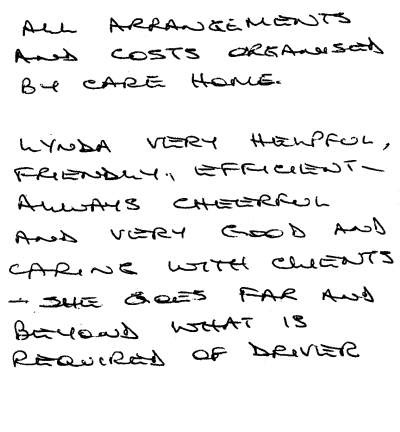 ALL ARRANGEMENTS
AND COSTS ORGANISED
BY CARE HOME.
LYNDA VERY HELPFUL,
FRIENDLY, EFFICIENT –
ALWAYS CHEERFUL
AND VERY GOOD AND
CARING WITH CLIENTS
– SHE GOES FAR AND
BEYOND WHAT IS
REQUIRED OF DRIVER